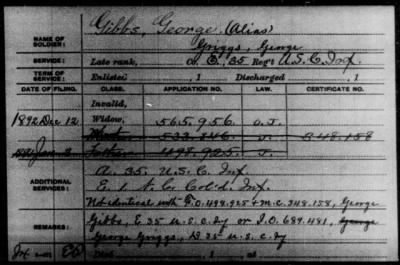 Gibbs, George (Alias)
NAME OF SOLDIER: Griggs, George
SERVICE: Late rank, Co. E, 35 Reg't U.S.C. Inf.
TERM OF SERVICE: Enlisted , 1 Discharged , 1
DATE OF FILING. CLASS. APPLICATION NO. LAW. CERTIFICATE NO.
Invalid,
1892 Dec 12 Widow, 565.956 O.J.
533.846 J. 348.158
498.925 J.
ADDITIONAL SERVICES: A. 35. U.S.C. Inf.
E. 1 N.C. Col'd. Inf.
REMARKS: Not identical with F.O. 498.925 & M.C. 348.158, George
Gibbs, E 35 U.S.C. Iy or I.O. 689.481, George
George Griggs, D 35 U.S.C. Iy